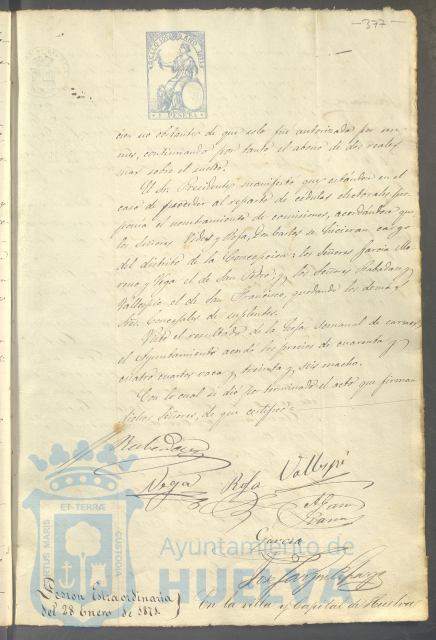 -377-
1 PESETA
cion no obstante de que solo fue autorizado por un
mes, continuando por tanto el abono de dos reales
mas sobre el sueldo.
El Sr. Presidente manifestó que estando en el
caso de proceder al reparto de cédulas electorales pro
ponia el nombramiento de comisiones, acordandose que
los Señores Vides y Rosa, Don Carlos se hicieran cargo
del distrito de la Concepcion; los Señores Garcia Mo
reno y Vega el de San Pedro; y los Señores Rabadan y
Vallespin el de San Francisco, quedando los demas
Sres. Concejales de suplentes.
Visto el resultado de la tasa semanal de carnes,
el Ayuntamiento acordó los precios de cuarenta y
cuatro cuartos vaca y treinta y seis macho.
Con lo cual se dio por terminado el acto que firman
dichos Señores, de que certifico =
Rabadan
Vega Rosa Vallespin
Garcia
ET TERRA
CUSTODIA
Ayuntamiento de
HUELVA
Sesion Estraordinaria
del 28 Enero de 1871.
En la villa y Capital de Huelva